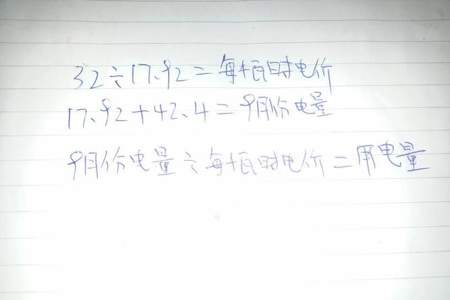 32÷17.92=每千瓦时电价
17.92+42.4=9月份电量
9月份电量÷每千瓦时电价=用电量